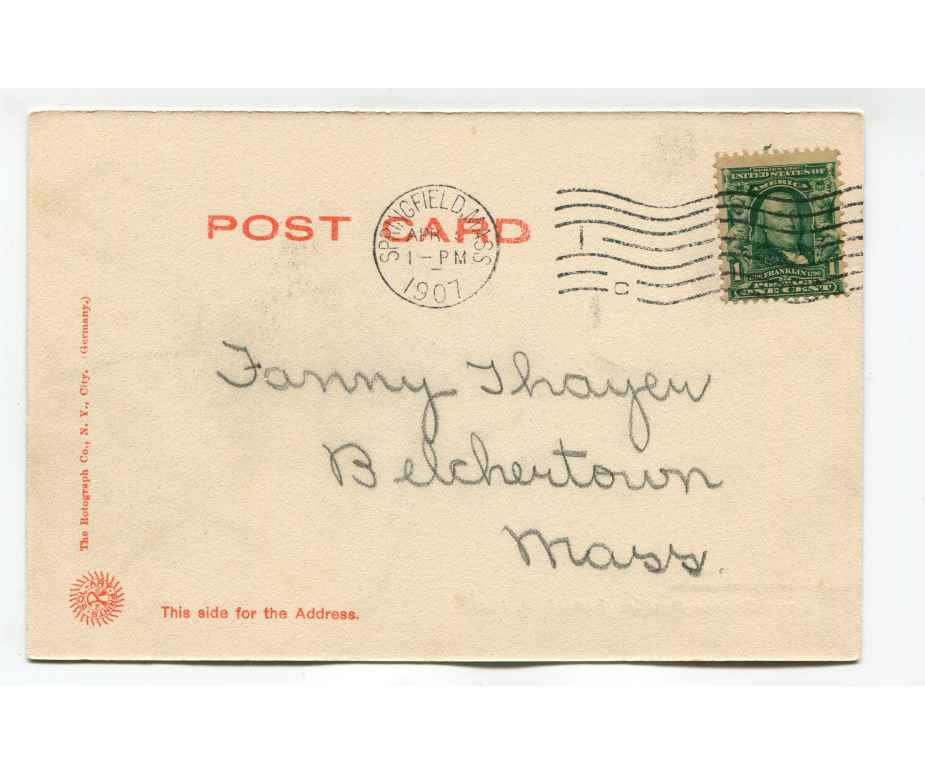 POST CARD
SPRINGFIELD, MASS
APR
1-PM
1907
C
SERIES 1902
UNITED STATES OF
AMERICA
1 FRANKLIN 1
POSTAGE
ONE CENT
Fanny Thayer
Belchertown
Mass.
The Rotograph Co., N. Y., City. (Germany.)
This side for the Address.